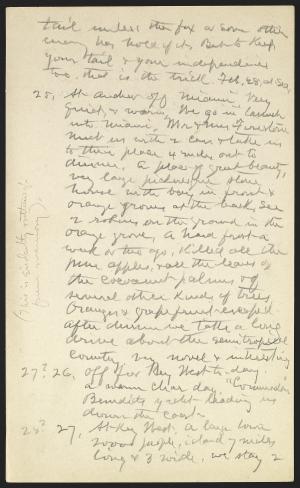 tail unless the fox or some other
enemy has hold of it. Better keep
your tail & your independence
too, that is the trick. Feb, 28, at Sea,
25, At anchor off Miami. Very
quiet, & warm. We go in launch
into Miami, Mr & Mrs Firestone
meet us with 2 cars & take us
to their place 4 miles out to
dinner. A place of great beauty,
very large picturesque stone
house with the bay in front &
orange groves at the back. See
2 robins on the ground in the
orange grove. A hard frost a
week or two ago, killed all the
pine apples, & all the leaves of
the cocoanut palms & of
several other kinds of trees,
Oranges & grape fruit escaped.
After dinner we take a long
drive about the semi tropical
country, very novel & interesting
27? 26, Off for Key West to-day.
a warm clear day, "Commodore
Benedict's yacht leading us
down the coast.
28? 27, At Key West. A large town
20000 people, island 7 miles
long & 3 wide, we stay 2
(This is evidently written
from memory)